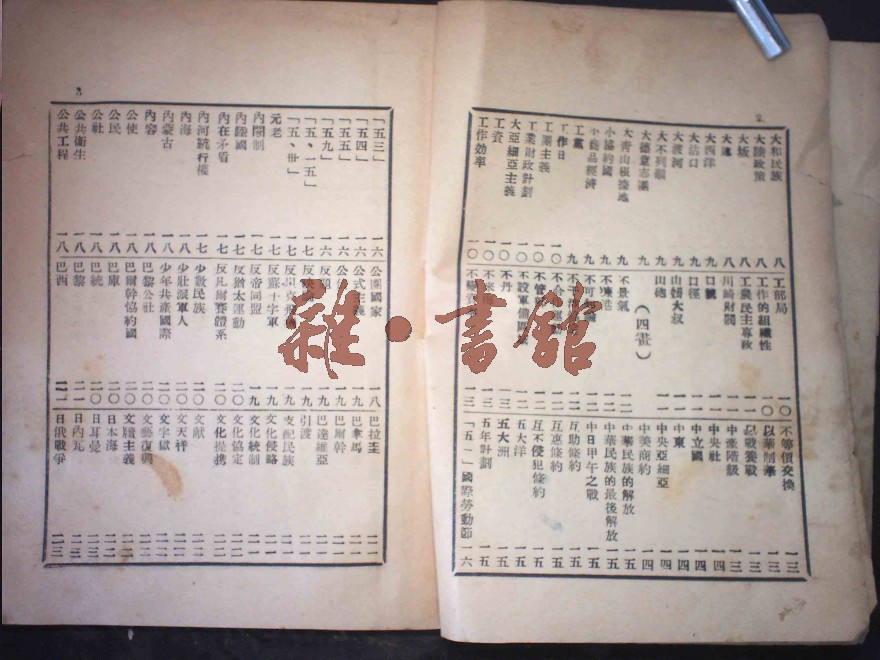 2
大和民族 八
大陸政策 八
大坂 八
大連 八
大西洋 九
大沽口 九
大渡河 九
大不列顛 九
大德意志議 九
大青山根據地 九
小協約國 九
小商品經濟 九
工黨 九
工作日 一〇
工團主義 一〇
工業財政計劃 一〇
大亞細亞主義 一〇
工資 一〇
工作效率 一〇
工部局 一〇
工作的組織性 一〇
工農民主專政 一一
川崎財閥 一一
口號 一一
口徑 一一
山姆大叔 一一
山砲 一一
（四畫）
不景氣 一二
不凍港 一二
不可
不干
不合
不管
不設軍備
不丹 一三
不等價交換 一三
以華制華 一三
以戰養戰 一三
中產階級 一三
中央社 一四
中立國 一四
中東 一四
中央亞細亞 一四
中美商約 一四
中華民族的解放 一五
中華民族的最後解放 一五
中日甲午之戰 一五
互助條約 一五
互惠條約 一五
互不侵犯條約 一五
五大洋 一五
五大洲 一五
五年計劃 一五
「五一」國際勞動節 一六
3
「五三」 一六
「五四」 一六
「五五」 一六
「五九」 一六
「五、一五」 一七
「五、卅」 一七
元老 一七
內閣制 一七
內陸國 一七
內在矛盾 一七
內河航行權 一七
內海 一八
內蒙古 一八
內容 一八
公使 一八
公民 一八
公社 一八
公共衛生 一八
公共工程 一八
公團國家 一八
公式主義 一九
反
反
反帝同盟 一九
反蘇十字軍 一九
反猶太運動 二〇
反凡爾賽體系 二〇
少數民族 二〇
少壯派軍人 二〇
少年共產國際 二〇
巴黎公社 二〇
巴爾幹協約國 二〇
巴庫 二〇
巴統 二〇
巴西 二一
巴拉圭 二一
巴拿馬 二一
巴爾幹 二一
巴達維亞 二一
引渡 二一
支配民族 二一
文化侵略 二一
文化統制 二一
文化協定 二二
文化提携 二二
文献 二二
文天祥 二二
文字獄 二二
文藝復興 二二
文牘主義 二二
日本海 二三
日耳曼 二三
日內瓦 二三
日俄戰爭 二三
雜·書館